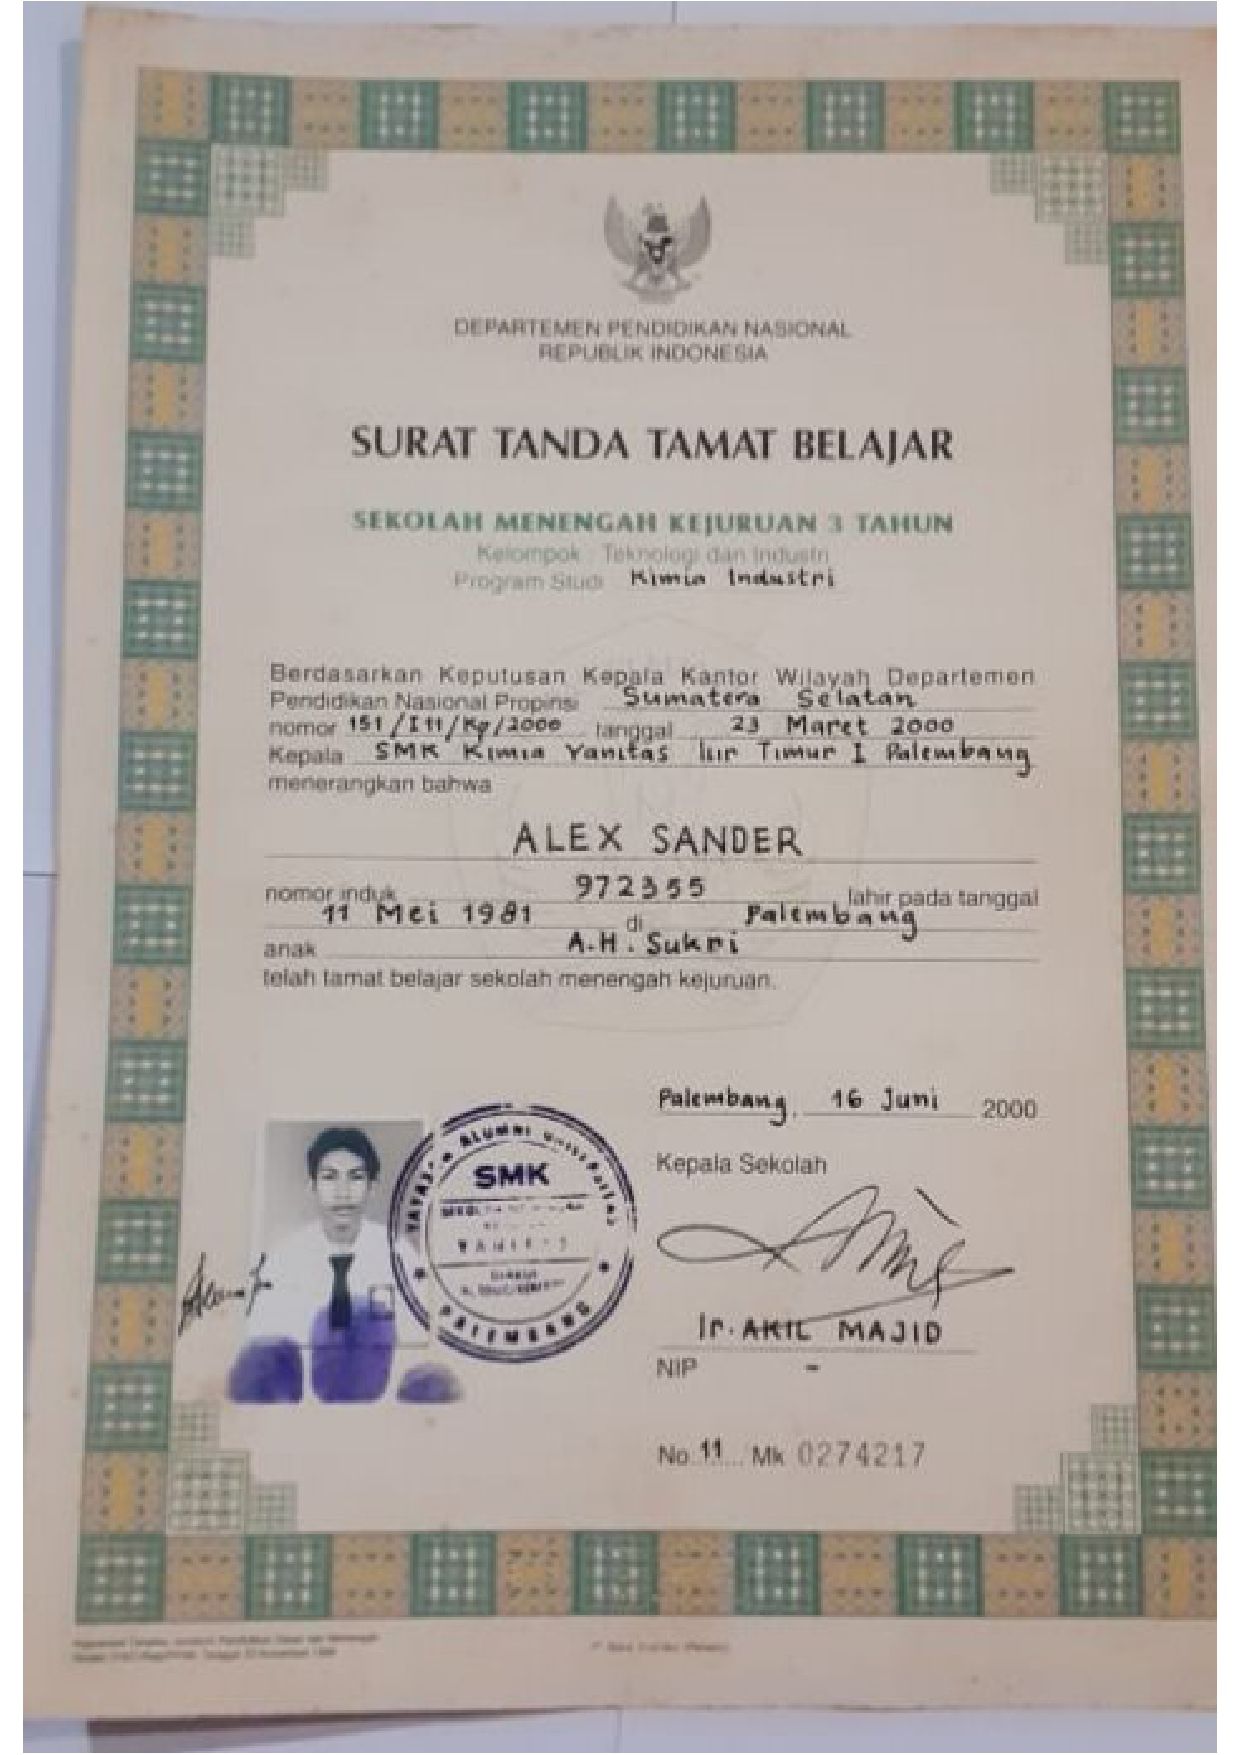 DEPARTEMEN PENDIDIKAN NASIONAL
REPUBLIK INDONESIA
SURAT TANDA TAMAT BELAJAR
SEKOLAH MENENGAH KEJURUAN 3 TAHUN
Kelompok : Teknologi dan Industri
Program Studi Kimia Industri
Berdasarkan Keputusan Kepala Kantor Wilayah Departemen
Pendidikan Nasional Propinsi Sumatera Selatan
nomor 151/I11/Kp/2000 tanggal 23 Maret 2000
Kepala SMK Kimia Yanitas Ilir Timur I Palembang
menerangkan bahwa
ALEX SANDER
nomor induk 972355 lahir pada tanggal
11 Mei 1981 di Palembang
anak A.H. Sukri
telah tamat belajar sekolah menengah kejuruan.
Palembang, 16 Juni 2000
Kepala Sekolah
ALUMNI
SMK
PALEMBANG
Ir. AKIL MAJID
NIP -
No. 11 Mk 0274217